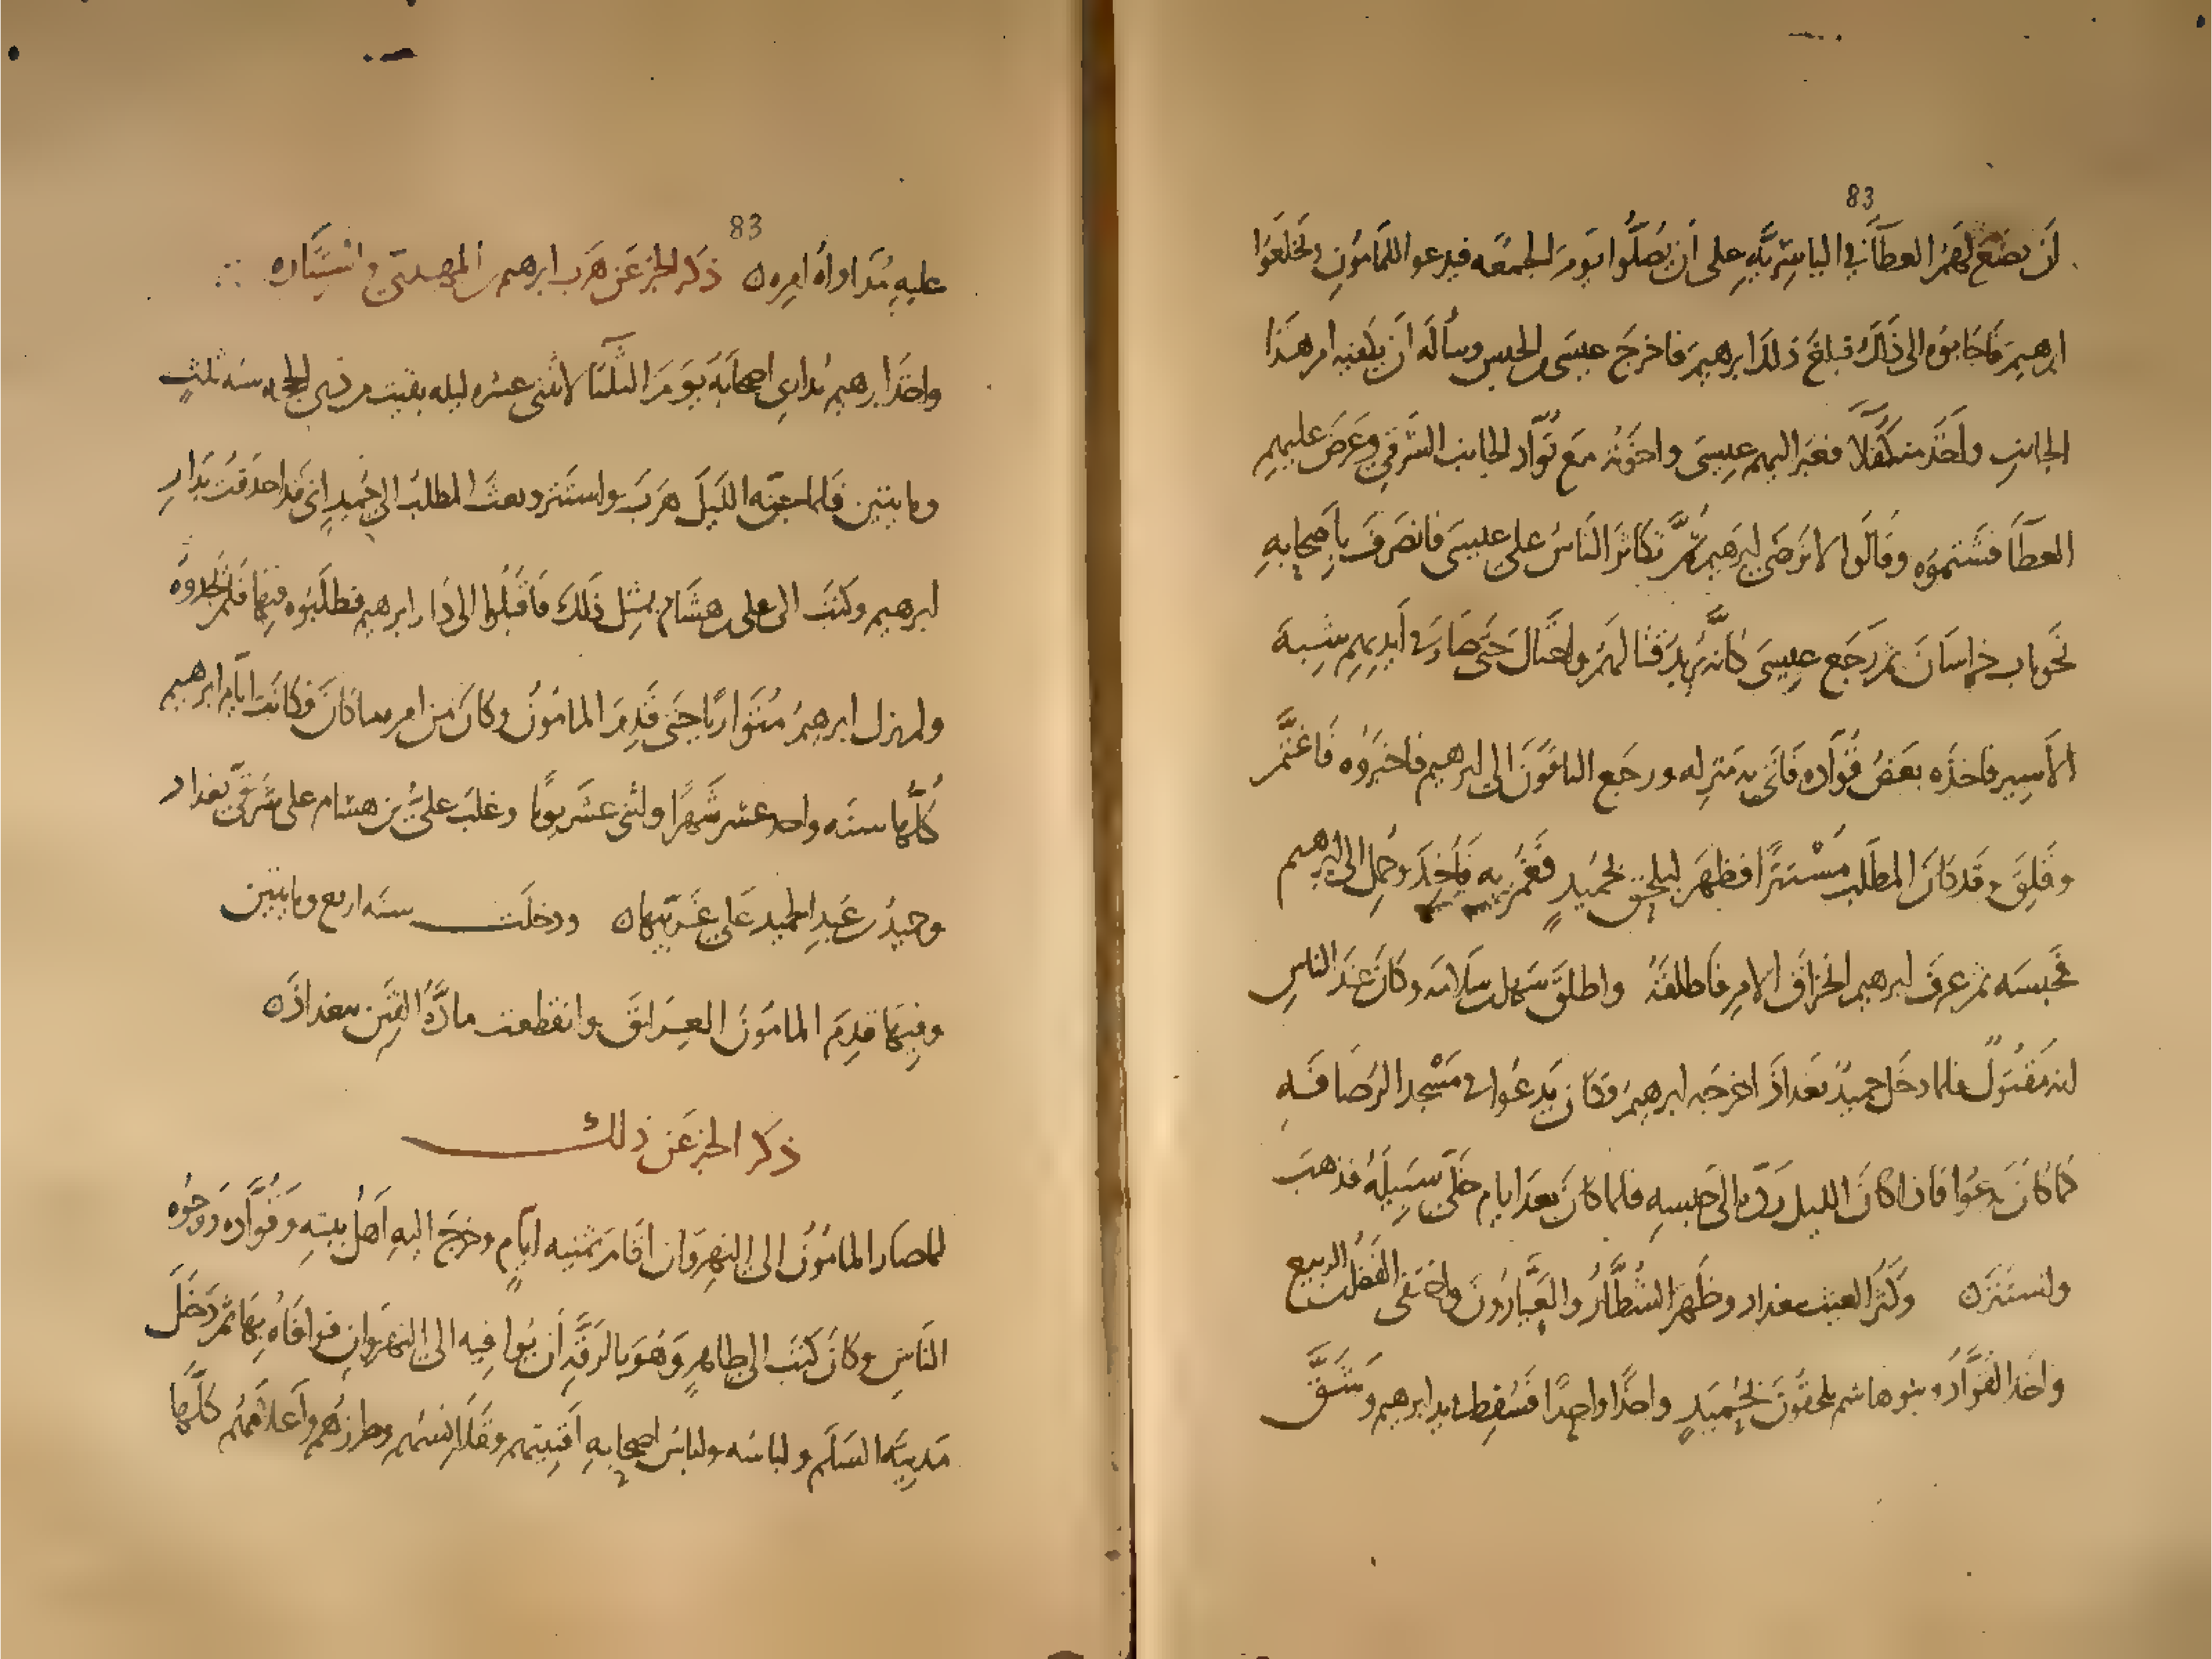 83
أن يصنع لهم العطآ في الياسريّه على أن يُصلّوا يوم الجمعه فيدعو اللمأمون ويخلعوا
ابرهيم فاجابوه الى ذلك فبلغ ذلك ابرهيم فاخرج عيسى من الحبس وسأله أن يكفيه امر هذا
الجانب وأخذ منه كفلآ فعبر اليهم عيسى واخوته مع قوّاد الجانب الشرقي وعرض عليهم
العطآ فشتموه وقالوا لا نرضى ابرهيم ثمّ تكاثر الناس على عيسى فانصرف باصحابه
نحو باب خراسان ثم رجع عيسى كأنّه يريد قتالهم واحتال حتى صار في أيديهم شبه
الأسير فاخذه بعض قُوّاده فأتى به منزله ورجع الباقون الى ابرهيم فاخبروه فاغتمّ
وقلق وقد كان المطلب مُسْتترًا فظهر ليلحق بحُميدٍ فغُمز به فأُخذ وحُمل الى ابرهيم
فحبسه ثم عرف ابرهيم انخراق الامر فأطلقهُ واطلق سهل بن سلامه وكان عند الناس
انه مقتولٌ فلما دخل حميدٌ بغداذ اخرجه ابرهيم فكان يدعُوا في مسْجد الرصافه
كما كان يدعُوا فاذا كان الليل ردّه الى حبسه فلما كان بعد ايام خلّى سبيلهُ فذهب
واستتره وكثر العبث ببغداد وظهر الشُطّارُ والعيّارُون واختفى الفضل بن الربيع
واخذ القوّادُ وبنو هاشم يلحقُون بحُميدٍ واحدًا واحدًا فسُقِط في يد ابرهيم وشقّ
83
عليه مُداواهُ امره ه ذكر الخبر عن هرب ابرهيم بن المهديّ واستتاره
واخذ ابرهيم يُدارى اصحابه يوم الثلثآ لاثنتى عشره ليله بقيت من ذى الحجه سنه ثلثٍ
ومايتين فلما جنّه الليل هرب واستتر وبعث المطلبُ الى حُميدٍ انى قد احدقتُ بدار
ابرهيم وكتب الى على بن هشام بمثل ذلك فأقبلُوا الى دار ابرهيم فطلبوه فيها فلم يجدوه
ولم يزل ابرهيم مُتواريًا حتى قدم المامُونُ وكان من امره ما كان فكانت ايّام ابرهيم
كلّها سنه واحد عشر شهرًا واثنى عشر يومًا وغلب علىُّ بن هشام على شرقىّ بغداد
وحميدُ بن عبد الحميد على غربيّها ه ودخلت سنه اربع ومايتين
وفيها قدم المامونُ العراق وانقطعت مادّهُ الفتن ببغداذ ه
ذكر الخبر عن ذلك
لما صار المامُونُ الى النهروان اقام ثمنيه ايّامٍ وخرج اليه اهلُ بيته وقُوّاده ووجُوه
الناس وكان كتب الى طاهرٍ وهُو بالرقّه أن يُوافيه الى النهروان فوافاهُ بها ثم دخل
مدينه السلم ولباسُه ولباسُ اصحابه اقبيتهم وقلانسُهم وطرزُهم واعلامُهُم كلّها